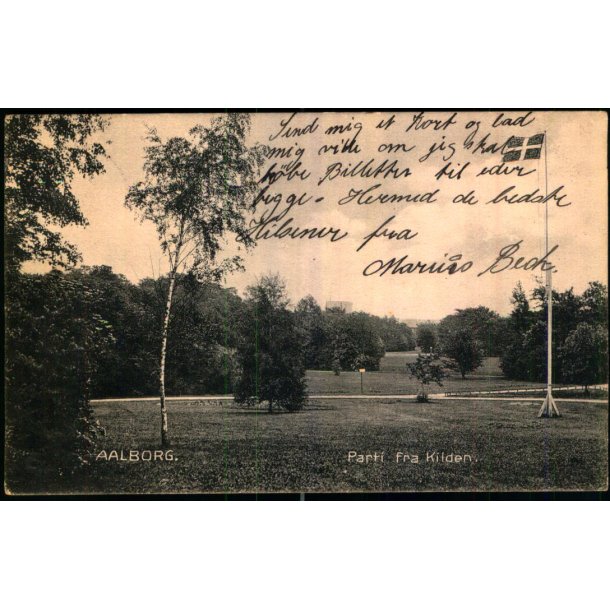 Send mig et Kort og lad
mig vide om jeg skal
købe Billetter til eder
begge. Hermed de bedste
Hilsener fra
Marius Bech.
AALBORG.
Parti fra Kilden.